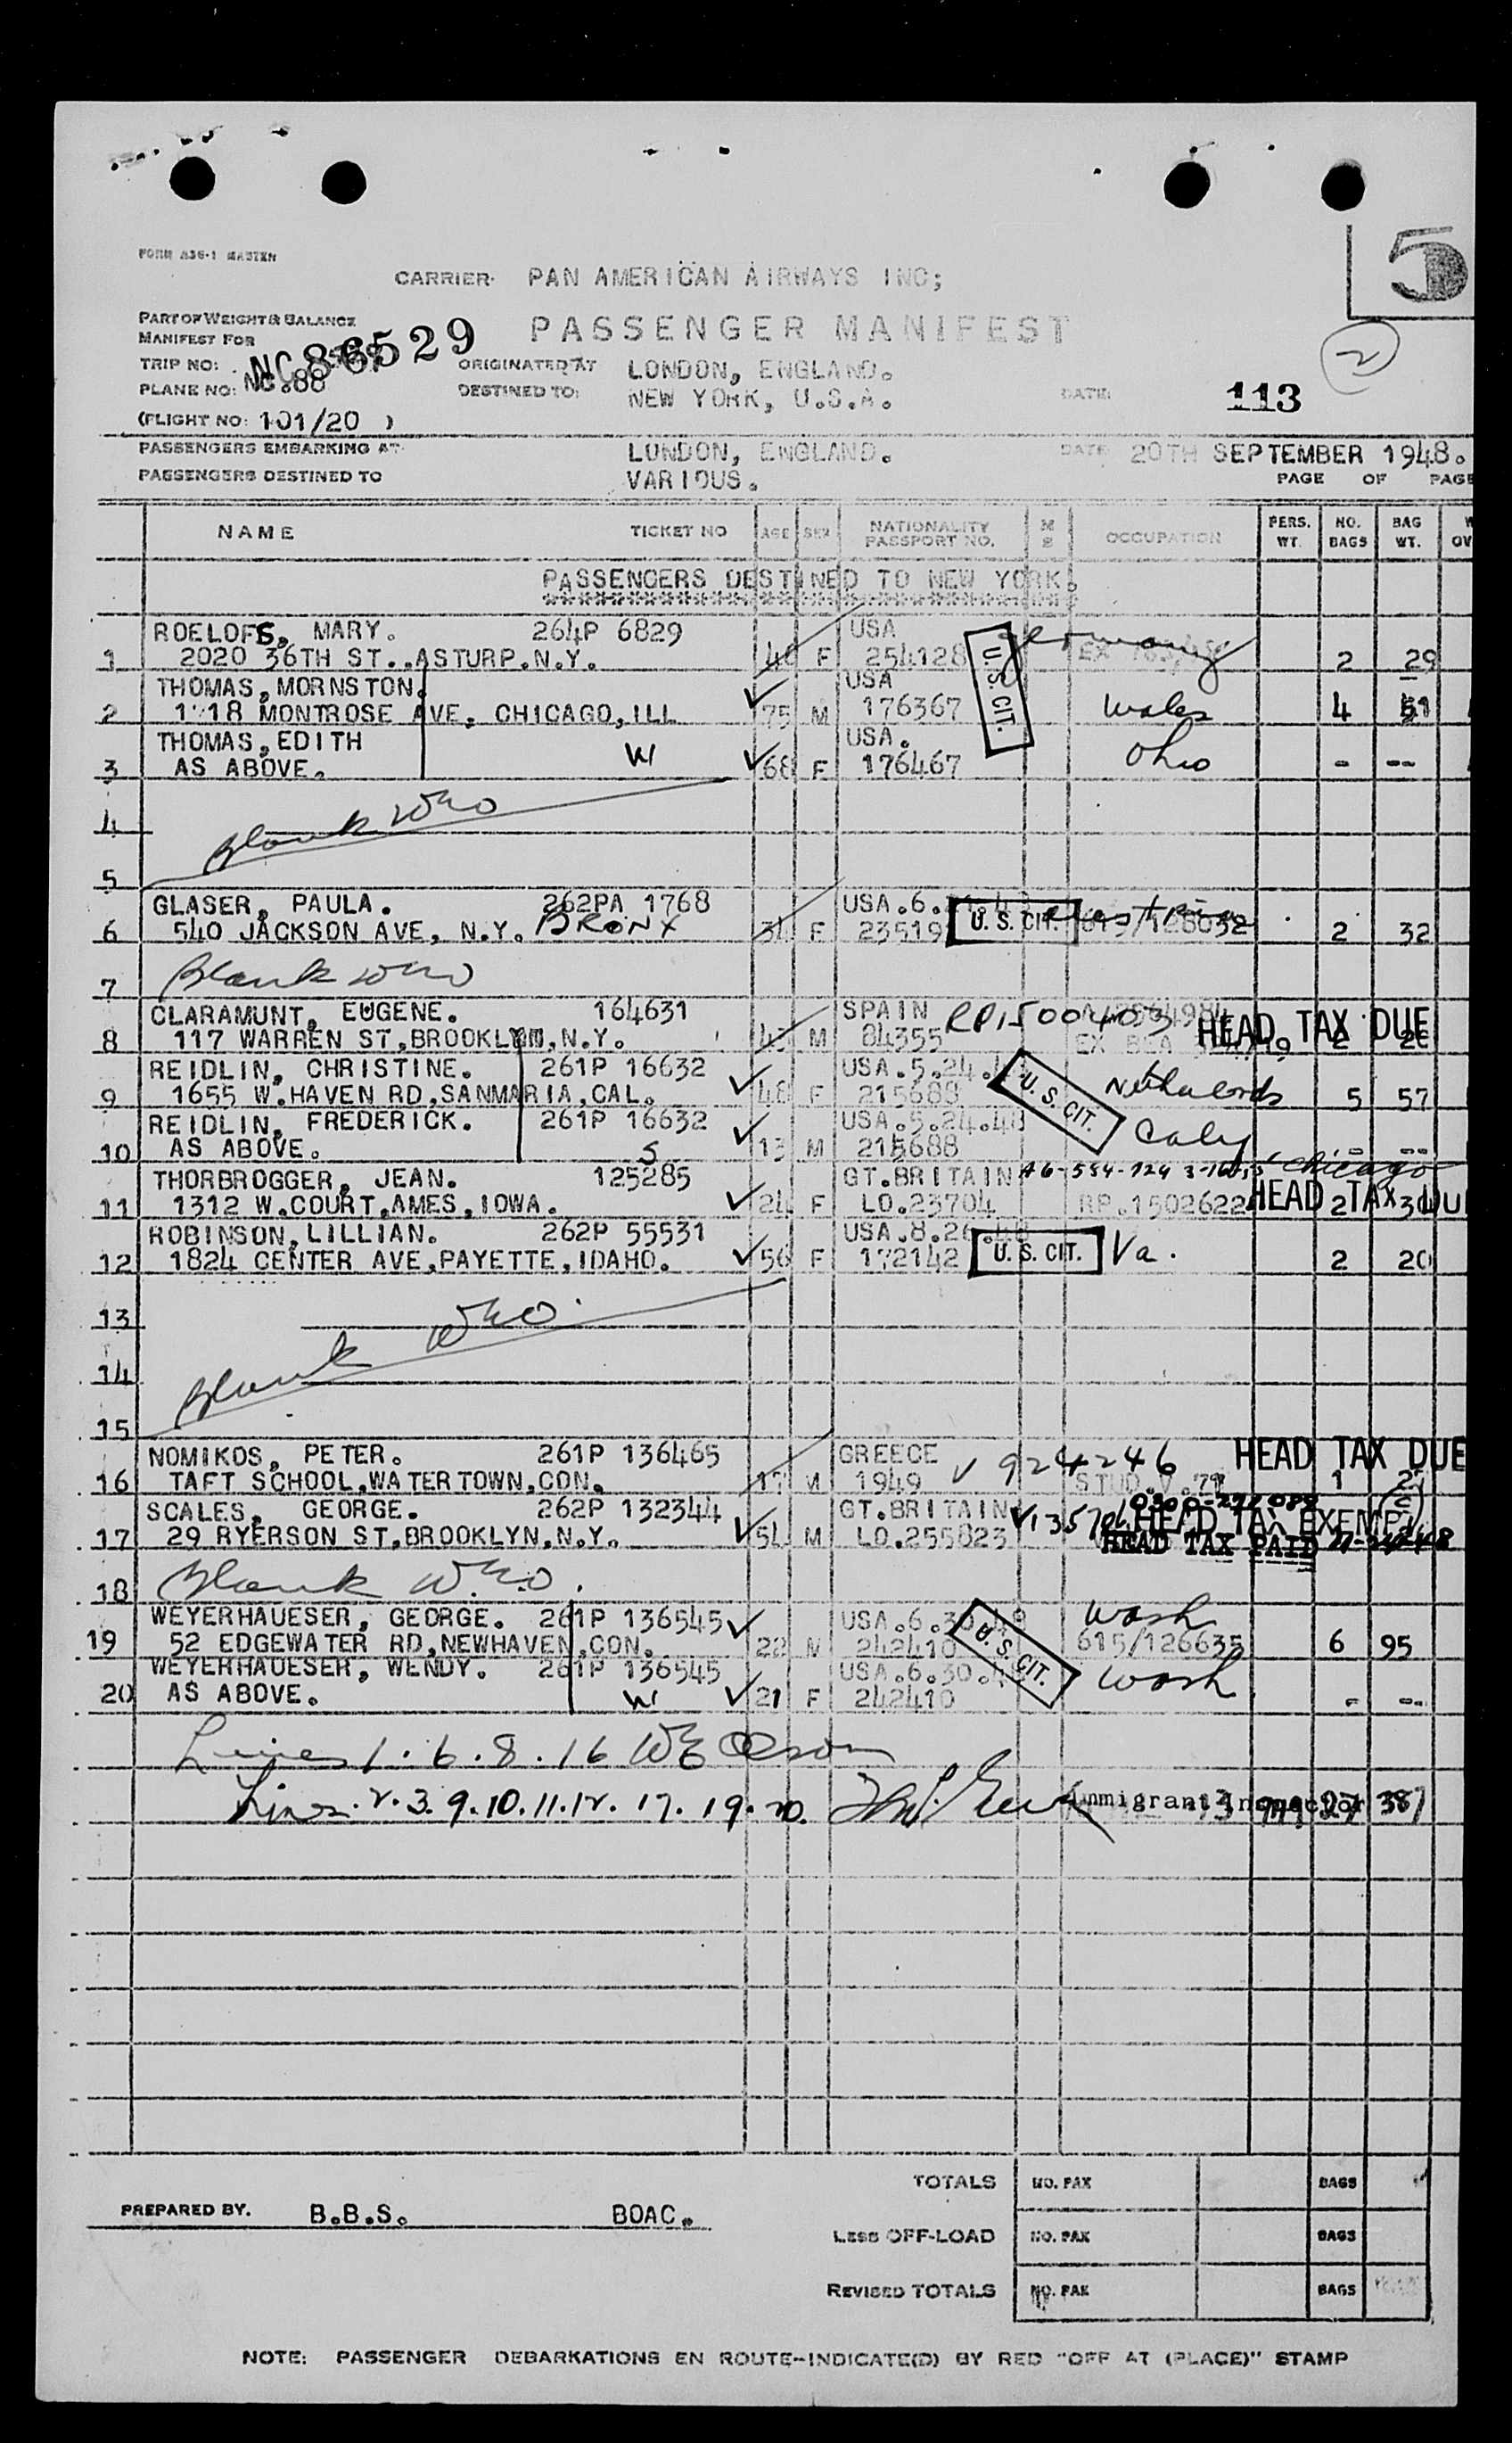 FORM 436-1
CARRIER: PAN AMERICAN AIRWAYS INC;
PART OF WEIGHT & BALANCE
MANIFEST FOR
PASSENGER MANIFEST
5
2
TRIP NO: NC 86529
ORIGINATED AT LONDON, ENGLAND.
PLANE NO: NC.88
DESTINED TO: NEW YORK, U.S.A. DATE: 113
(FLIGHT NO: 101/20 )
PASSENGERS EMBARKING AT LONDON, ENGLAND. DATE 20TH SEPTEMBER 1948.
PASSENGERS DESTINED TO VARIOUS. PAGE OF PAGE
NAME TICKET NO AGE SEX NATIONALITY PASSPORT NO. M S OCCUPATION PERS. WT. NO. BAGS BAG WT.
PASSENGERS DESTINED TO NEW YORK.
ROELOFS, MARY. 264P 6829 USA Germany
1 2020 36TH ST..ASTURP.N.Y. F 254128 U.S. CIT. 2 29
THOMAS, MORNSTON. USA
2 1718 MONTROSE AVE, CHICAGO, ILL 75 M 176367 Wales 4 51
THOMAS, EDITH W USA.
3 AS ABOVE. 68 F 176467 Ohio - --
4 Blank WEO
5
GLASER, PAULA. 262PA 1768 USA.6.
6 540 JACKSON AVE, N.Y. BRONX F 23519 U.S. CIT. Austria 2 32
7 Blank WEO
CLARAMUNT, EUGENE. 164631 SPAIN RP1500403 HEAD TAX DUE
8 117 WARREN ST, BROOKLYN, N.Y. 43 M 84355
REIDLIN, CHRISTINE. 261P 16632 USA.5.24.
9 1655 W.HAVEN RD, SANMARIA, CAL. 48 F 215688 U.S. CIT. Netherlands 5 57
REIDLIN, FREDERICK. 261P 16632 USA.5.24.48
10 AS ABOVE. S 13 M 215688 Caly - --
THORBROGGER, JEAN. 125285 GT.BRITAIN Chicago
11 1312 W.COURT, AMES, IOWA. 24 F LO.23704 RP.1502622 HEAD TAX DU 2 30
ROBINSON, LILLIAN. 262P 55531 USA.8.26.48
12 1824 CENTER AVE, PAYETTE, IDAHO. 56 F 172142 U.S. CIT. Va. 2 20
13 Blank WEO
14
15
NOMIKOS, PETER. 261P 136465 GREECE V 924246 HEAD TAX DUE
16 TAFT SCHOOL, WATERTOWN, CON. 17 M 1949 1
SCALES, GEORGE. 262P 132344 GT.BRITAIN HEAD TAX EXEMPT
17 29 RYERSON ST, BROOKLYN, N.Y. 54 M LO.255823 HEAD TAX PAID
18 Blank W.E.O.
WEYERHAUESER, GEORGE. 261P 136545 USA.6.30.48 Wash
19 52 EDGEWATER RD, NEWHAVEN, CON. 22 M 242410 U.S. CIT. 615/126635 6 95
WEYERHAUESER, WENDY. 261P 136545 USA.6.30.4
20 AS ABOVE. W 21 F 242410 Wash - --
Lines 1. 6. 8. 16 WE Olson
Lines. 2. 3. 9. 10. 11. 12. 17. 19. 20. Immigrant Inspector 387
TOTALS NO. PAX BAGS
PREPARED BY. B.B.S. BOAC.
LESS OFF-LOAD NO. PAX BAGS
REVISED TOTALS NO. PAX BAGS
NOTE: PASSENGER DEBARKATIONS EN ROUTE-INDICATE(D) BY RED "OFF AT (PLACE)" STAMP